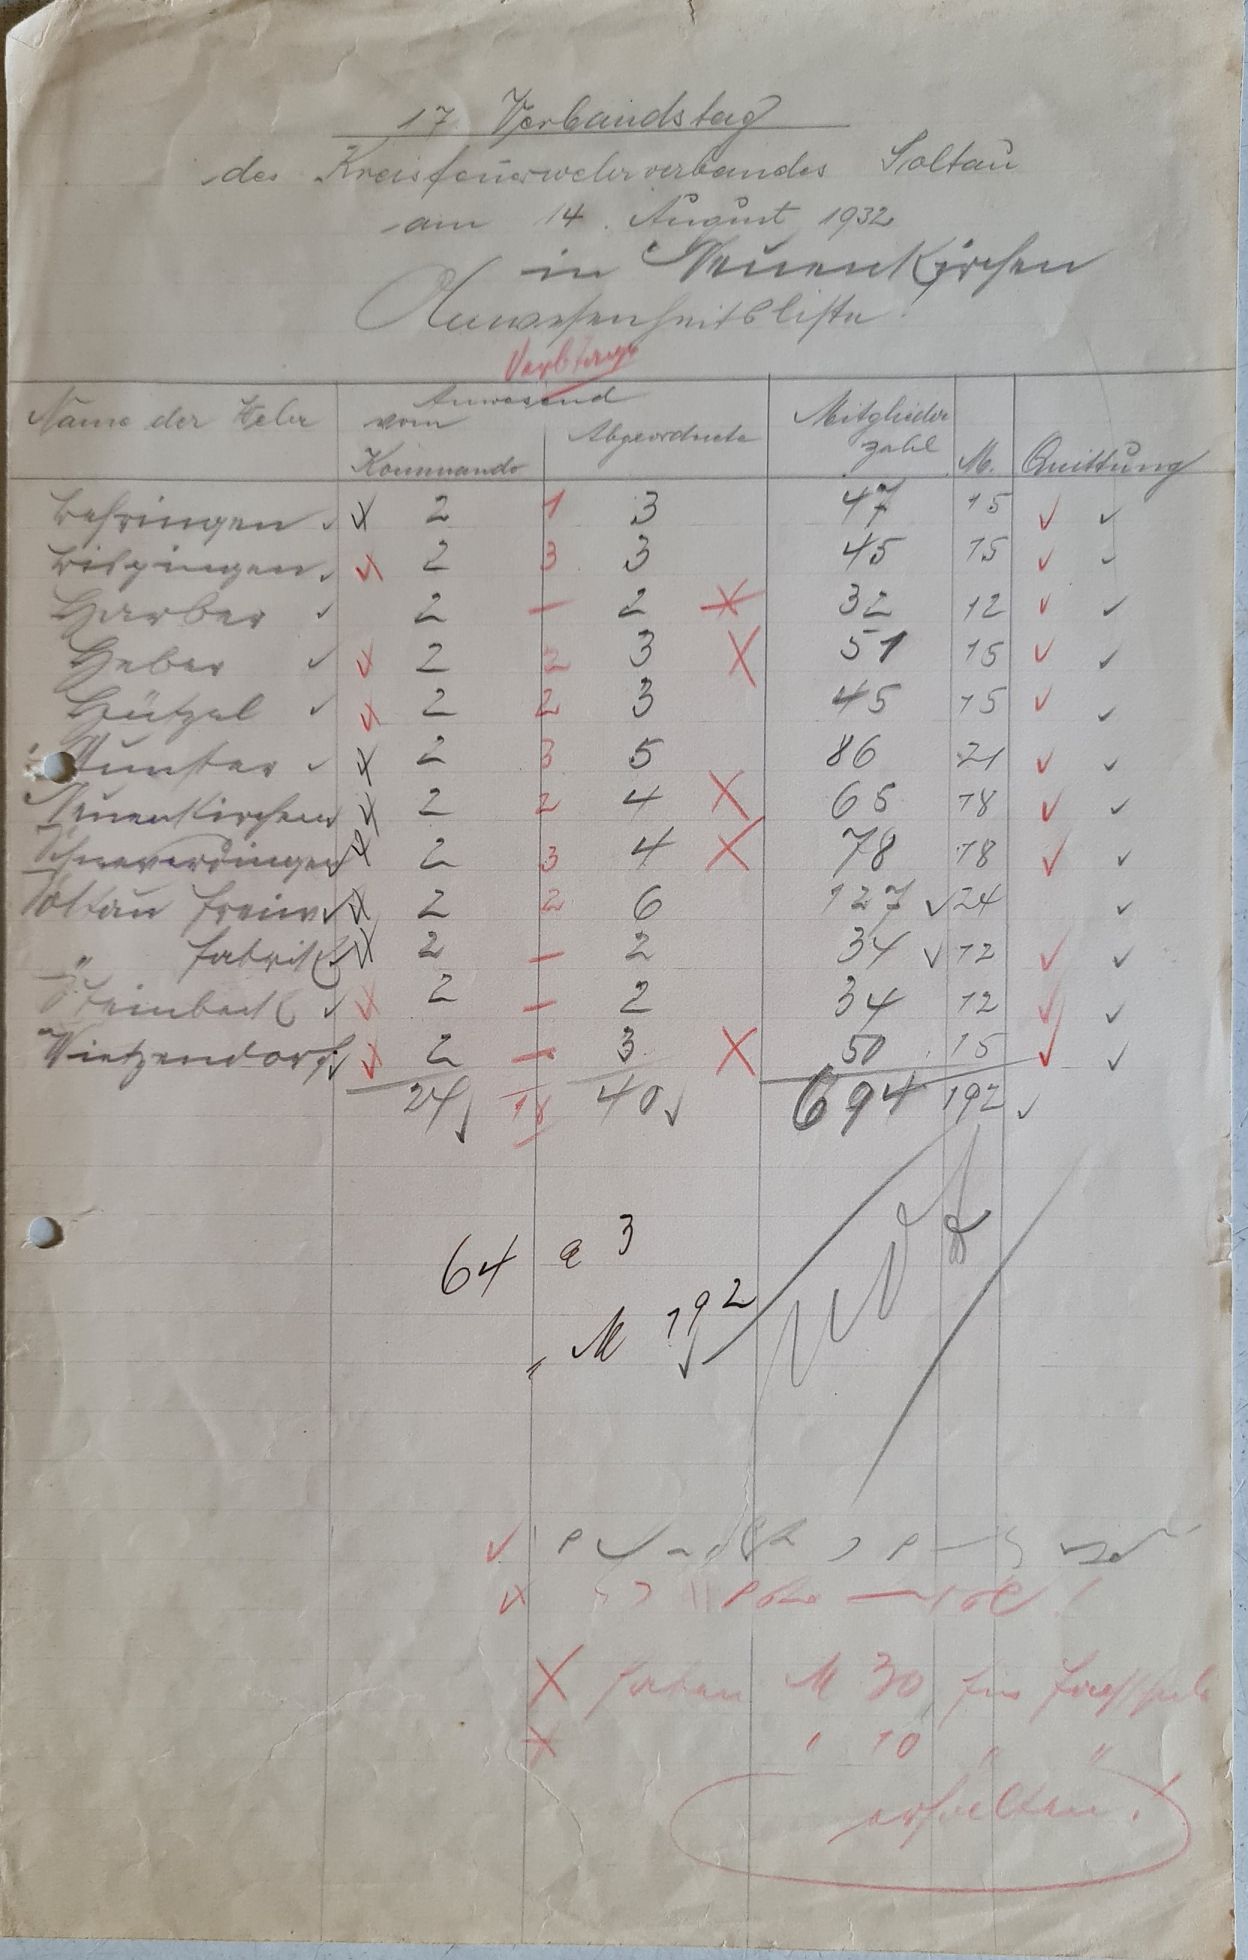 17. Verbandstag
des Kreisfeuerwehrverbandes Soltau
am 14. August 1932
in Neuenkirchen
Anwesenheitsliste.
Name der Wehr Anwesend vom Kommando Abgeordnete Mitglieder zahl M. Quittung
Behringen ✓ x 2 1 3 47 15 ✓ ✓
Bispingen ✓ x 2 3 3 45 15 ✓ ✓
Harber ✓ 2 — 2 x 32 12 ✓ ✓
Heber ✓ x 2 2 3 X 51 15 ✓ ✓
Hützel ✓ x 2 2 3 45 15 ✓ ✓
Munster ✓ x 2 3 5 86 21 ✓ ✓
Neuenkirchen x 2 2 4 X 65 18 ✓ ✓
Schneverdingen x 2 3 4 X 78 18 ✓ ✓
Soltau Freiw. ✓ x 2 2 6 127 ✓ 24 ✓
" Fabrik ✓ x 2 — 2 34 ✓ 12 ✓ ✓
Steinbeck ✓ x 2 — 2 34 12 ✓ ✓
Wietzendorf ✓ x 2 — 3 X 50 15 ✓ ✓
24 ✓ 18 40 ✓ 694 192 ✓
64 a 3
" M 192 ✓
X haben M 30 für
x " 10 " "
erhalten!